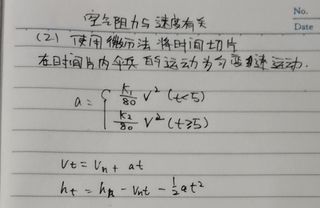 No.
Date
空气阻力与速度有关
(2) 使用微元法 将时间切片
在时间片内 运动为匀变速运动.
a = { k₁/80 v² (t<5)
k₂/80 v² (t≥5)
Vt = Vn + at
ht = hn - Vnt - 1/2 at²